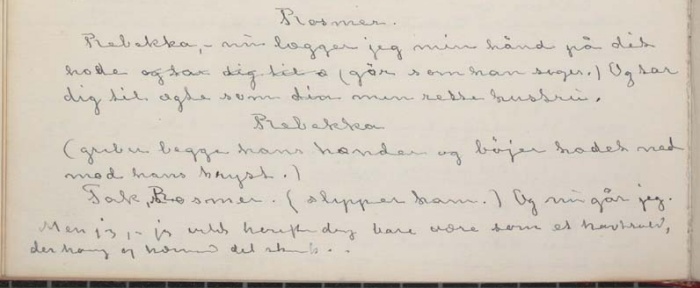 Rosmer.
Rebekka, – nu lægger jeg min hånd på dit
hode og tar dig til (gør som han siger.) Og tar
dig til ægte som din min rette hustru.
Rebekka
(griber begge hans hænder og bøjer hodet ned
mod hans bryst.)
Tak, Rosmer. (slipper ham.) Og nu går jeg.
Men jeg, – jeg vilde herefter bare være som et havtrold,
der hang og hæmmed det skib . .